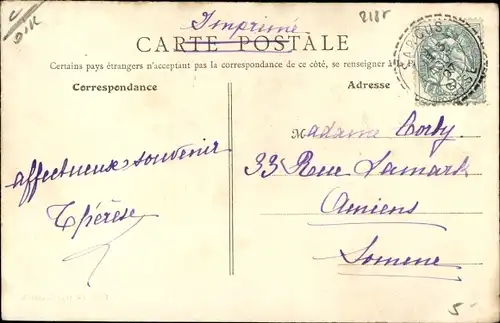 Imprimé
2185
CARTE POSTALE
Certains pays étrangers n'acceptant pas la correspondance de ce côté, se renseigner à
Correspondance
Adresse
Madame Corby
affectueux souvenir
33 Rue Lamark
Thérèse
Amiens
Somme
5-